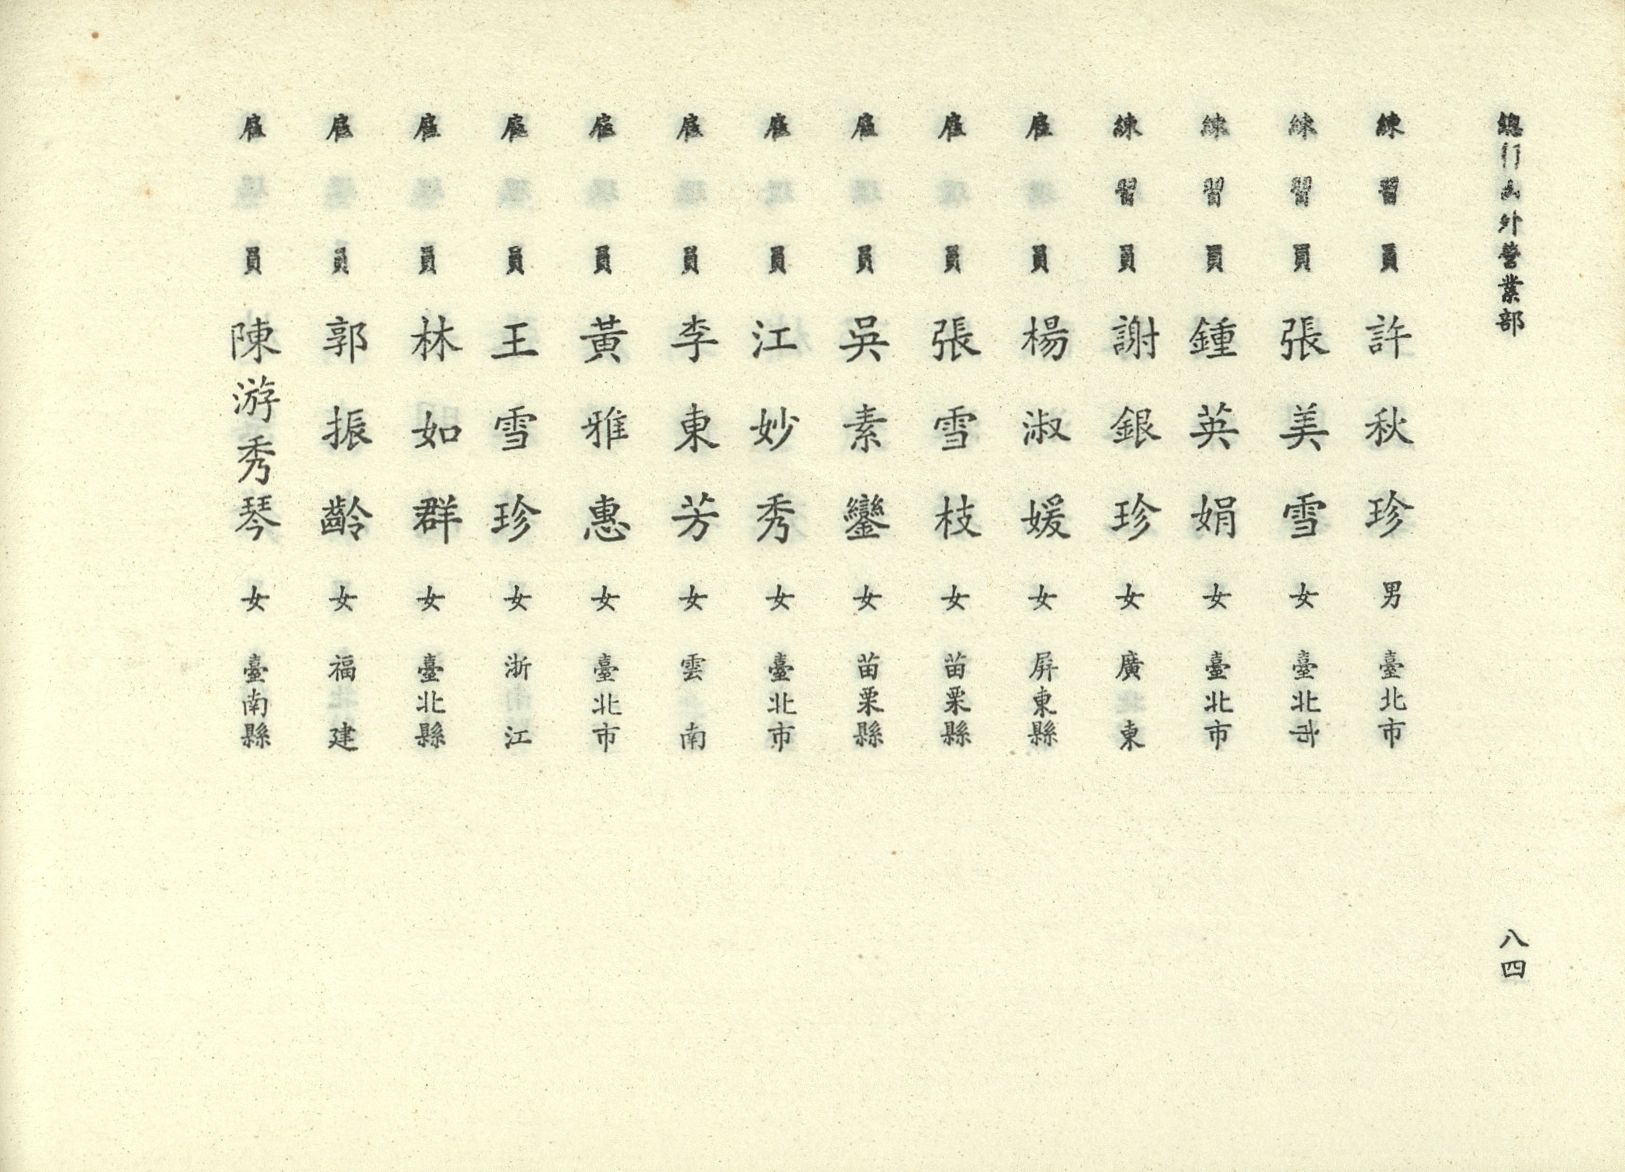 總行國外營業部
練習員 許秋珍 男 臺北市
練習員 張美雪 女 臺北市
練習員 鍾英娟 女 臺北市
練習員 謝銀珍 女 廣東
雇員 楊淑媛 女 屏東縣
雇員 張雪枝 女 苗栗縣
雇員 吳素鑾 女 苗栗縣
雇員 江妙秀 女 臺北市
雇員 李東芳 女 雲南
雇員 黃雅惠 女 臺北市
雇員 王雪珍 女 浙江
雇員 林如群 女 臺北縣
雇員 郭振齡 女 福建
雇員 陳游秀琴 女 臺南縣
八四